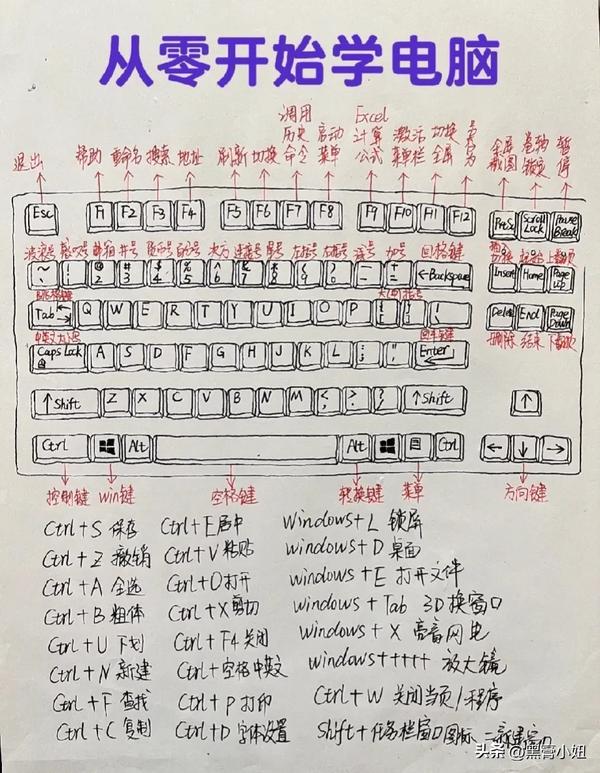 从零开始学电脑
退出 帮助 重命名 搜索 地址 刷新 切换 调用历史命令 启动菜单 Excel计算公式 激活菜单栏 切换全屏 另存为 全屏截图 卷轴锁定 暂停
Esc F1 F2 F3 F4 F5 F6 F7 F8 F9 F10 F11 F12 PrtSc Scroll Lock Pause Break
波浪号 感叹号 邮箱 井号 货币号 百分号 次方 连接号 乘号 左括号 右括号 减号 加号 回格键 起始台 上翻页
~ ! @ 2 # 3 $ 4 % 5 ^ 6 & 7 * 8 ( 9 ) 0 — + ← Backspace Insert Home Page up
大小括号
Tab Q W E R T Y U I O P { } Delete End Page Down
回车键 删除 结束 下翻页
Caps Lock A S D F G H J K L Enter
↑ Shift Z X C V B N M < > ? ↑ Shift ↑
Ctrl Alt Alt Ctrl ← ↓ →
控制键 win键 空格键 转换键 菜单 方向键
Ctrl+S 保存 Ctrl+E 居中 Windows+L 锁屏
Ctrl+Z 撤销 Ctrl+V 粘贴 Windows+D 桌面
Ctrl+A 全选 Ctrl+O 打开 windows+E 打开文件
Ctrl+B 粗体 Ctrl+X 剪切 windows+Tab 3D换窗口
Ctrl+U 下划 Ctrl+F4 关闭 Windows+X 高音网电
Ctrl+N 新建 Ctrl+空格 中英文 windows+++++ 放大镜
Ctrl+F 查找 Ctrl+P 打印 Ctrl+W 关闭当页/程序
Ctrl+C 复制 Ctrl+D 字体设置 Shift+任务栏窗口图标=新建窗口
头条@黑膏小姐